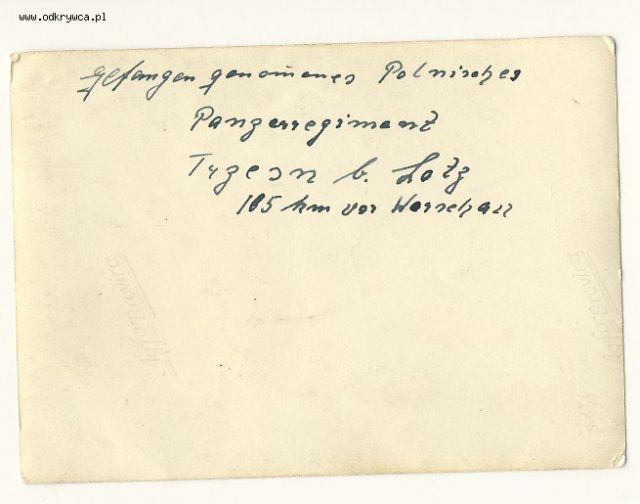 www.odkrywca.pl
gefangen genom̄enes Polnisches
Panzerregiment
b. Lotz
185 km vor Warschau